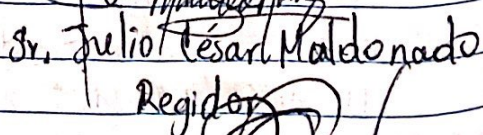 Sr. Julio César Maldonado
Regidor